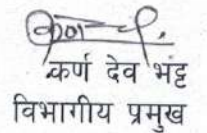 कर्ण देव भट्ट
विभागीय प्रमुख